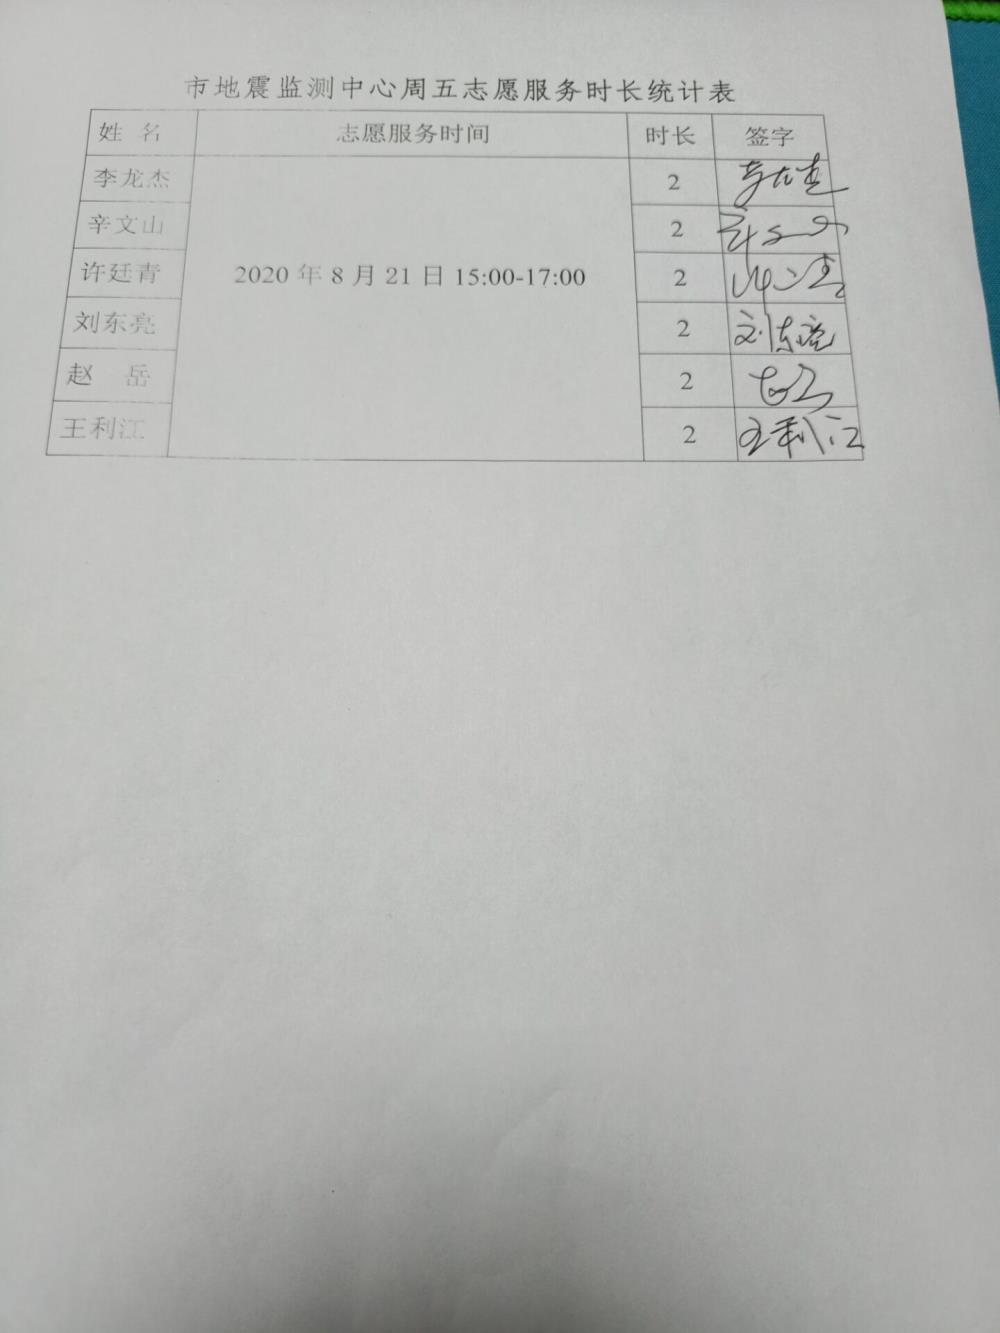 市地震监测中心周五志愿服务时长统计表
姓 名 志愿服务时间 时长 签字
李龙杰 2 李龙杰
辛文山 2
许廷青 2020 年 8 月 21 日 15:00-17:00 2
刘东亮 2 刘东亮
赵 岳 2
王利江 2 王利江